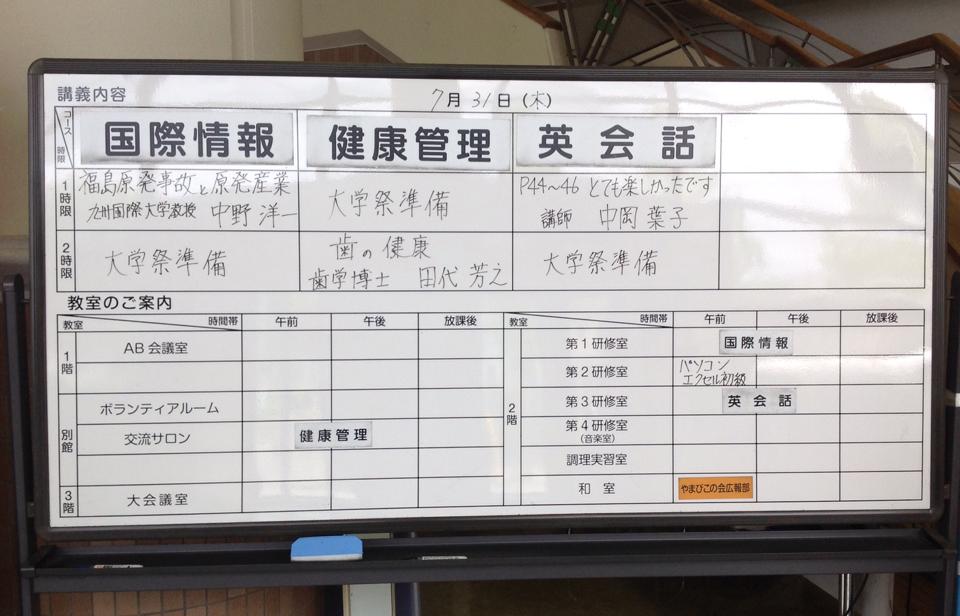 講義内容
7月31日(木)
コース
時限
国際情報
健康管理
英会話
1時限
福島原発事故と原発産業
九州国際大学教授 中野洋一
大学祭準備
P44~46 とても楽しかったです
講師 中岡葉子
2時限
大学祭準備
歯の健康
歯学博士 田代芳之
大学祭準備
教室のご案内
教室 時間帯 午前 午後 放課後
1階
AB会議室
別館
ボランティアルーム
交流サロン 健康管理
3階
大会議室
教室 時間帯 午前 午後 放課後
2階
第1研修室 国際情報
第2研修室 パソコン
エクセル初級
第3研修室 英会話
第4研修室
(音楽室)
調理実習室
和室 やまびこの会広報部